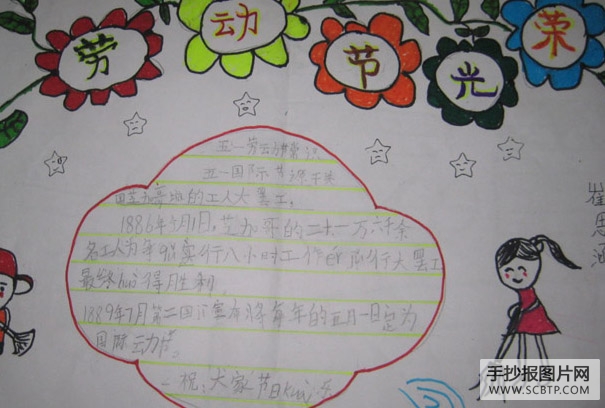 劳动节光荣
五一劳动节常识
五一国际 节源于美
国芝 哥的工人大罢工,
1886年5月1日,芝加哥的二十一万六千余
名工人为争取实行八小时工作 而行大罢工
最终huò得胜利
1889年7月第二国 宣布将每年的五月一日定为
国际 动节。
祝:大家节日kuài乐
崔思涵
手抄报图片网
WWW.SCBTP.COM